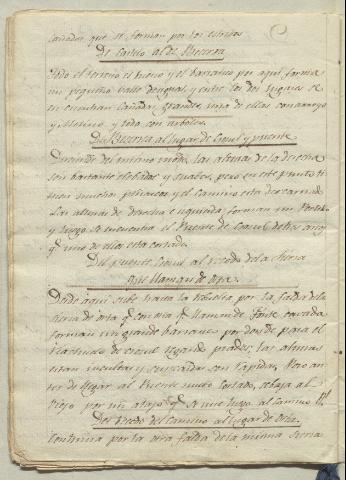 cañadas que se forman por los estribos
De Castillo al de Becerra
Todo el terreno es bueno y el barranco por aqui forma
un pequeño valle desigual y entre los dos lugares se
encuentran Cañadas grandes, una de ellas con arroyo
y Molino, y todo con arboles.
De Becerra al lugar de Cional y puente
Durando del mismo modo, las alturas de la derecha
son bastante elebadas y suabes, pero en este punto ti
enen muchos peñascos y el camino esta descarnado
Las alturas de derecha e izquierda forman un Portillo
y luego se encuentra el Puente de de tres arcos
q.e uno de ellos esta cortado.
Del puente al de la Sierra
que llaman de
Desde aqui sube hacia la por la falda de la
Sierra de esta q.e con otra q.e llaman de Fonte
forman un grande barranco por donde pasa el
Riachuelo de llegando prados; las alturas
estan incultas y con rapidez. Pero an
tes de llegar al Puente nuevo Cortado, abaja al
viejo por un atajo q.e se une luego al camino R.l
Del del camino al lugar de
Continua por la otra falda de la misma Sierra